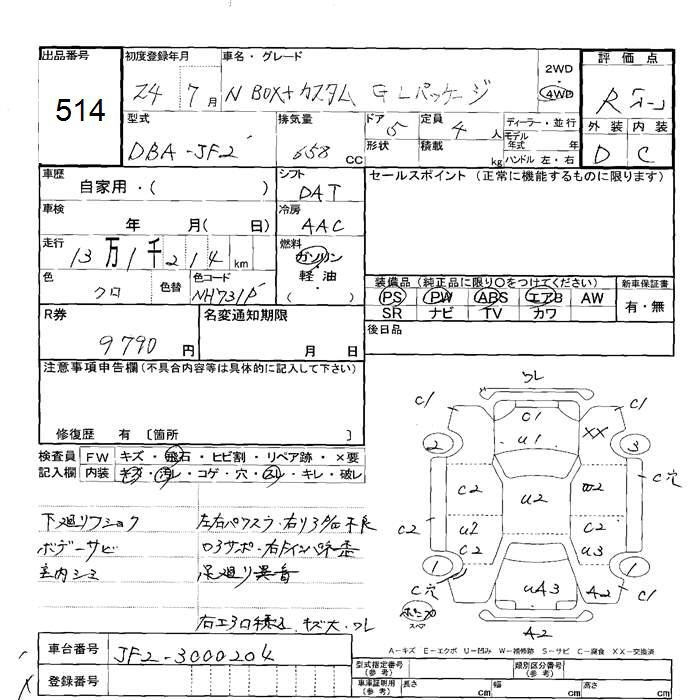 出品番号 初度登録年月 車名・グレード 2WD 評価点
514 24 7月 N BOX+カスタム G Lパッケージ 4WD R
型式 排気量 ドア 定員 ディーラー・並行 外装 内装
DBA-JF2 658 CC 5 4 人 モデル年式 年 D C
形状 積載 kg ハンドル 左・右
車歴 シフト セールスポイント (正常に機能するものに限ります)
自家用・( ) DAT
車検 冷房
年 月( 日) AAC
走行 燃料
13万1千214 km ガソリン・軽油
色 色替 色コード ( )
クロ NH731P
装備品 (純正品に限り〇をつけてください) 新車保証書
PS PW ABS エアB AW 有・無
SR ナビ TV カワ
R券 名変通知期限 後日品
9790 円 月 日
注意事項申告欄 (不具合内容等は具体的に記入して下さい)
修復歴 有 〔箇所 〕
検査員 FW キズ・飛石・ヒビ割・リペア跡・×要
記入欄 内装 キズ・汚レ・コゲ・穴・スレ・キレ・破レ
下廻りフショク 左右パワスラ・右リ
ボデーサビ
室内シミ 足廻り異音
キズ大・ワレ
ワレ
C1 C1
C1
2 U1 XX 3
C穴
C2 U2 W2
C2 U2 C2
C2 U3
1 1
C穴 UA3 A2
スペア
A2
A-キズ E-エクボ U-凹み W-補修跡 S-サビ C-腐食 XX-交換済
車台番号 JF2-3000204
型式指定番号 (参考) 類別区分番号 (参考)
登録番号
車庫証明用 (参考) 長さ cm 幅 cm 高さ cm